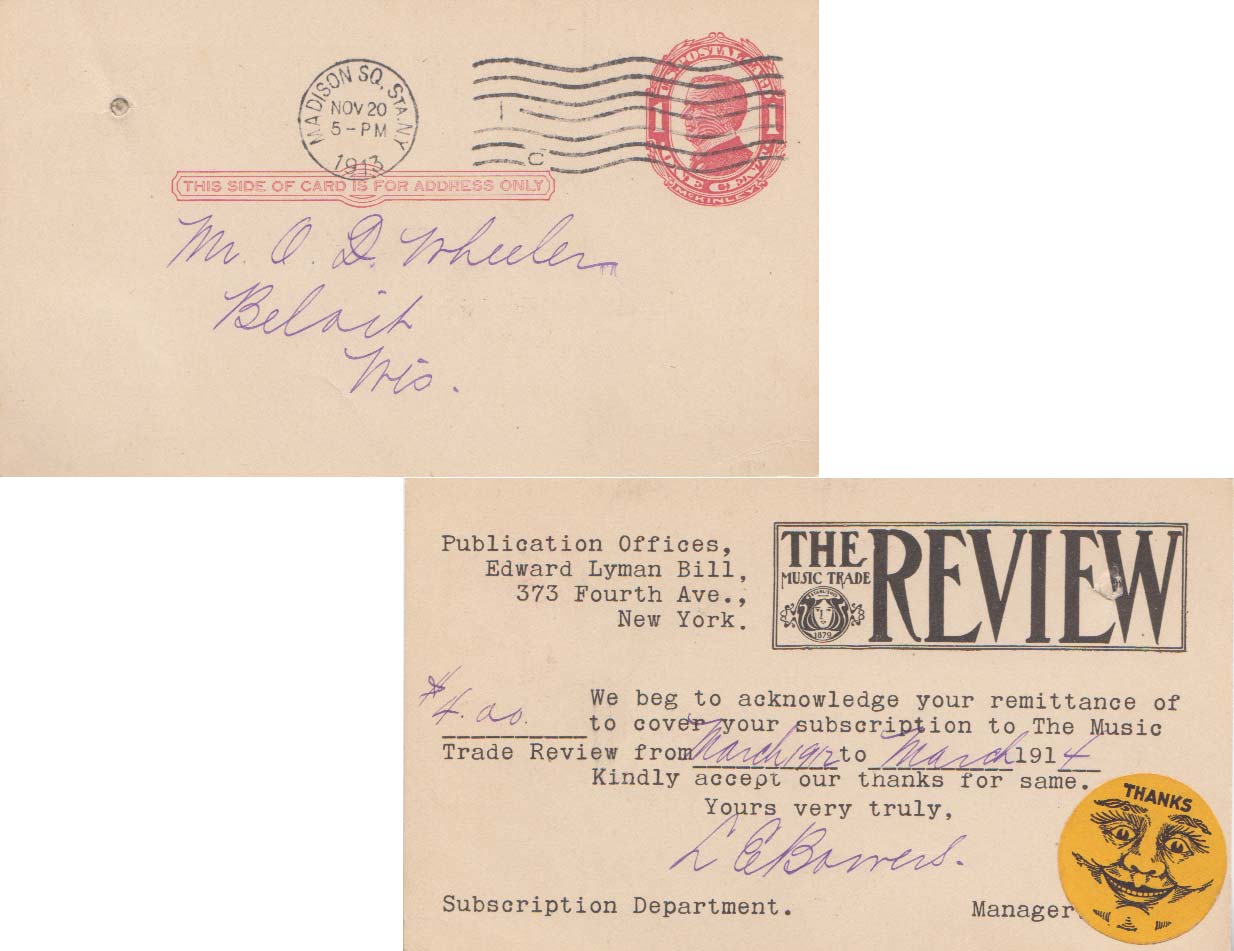 MADISON SQ. STA. N.Y.
NOV 20
5-PM
1913
C
U.S. POSTAL CARD
1 1
ONE CENT
McKINLEY
THIS SIDE OF CARD IS FOR ADDRESS ONLY
Mr. O. D. Wheeler
Beloit
Wis.
Publication Offices,
Edward Lyman Bill,
373 Fourth Ave.,
New York.
THE
MUSIC TRADE
REVIEW
ESTABLISHED
1879
$4.00. We beg to acknowledge your remittance of
to cover your subscription to The Music
Trade Review from March 1912 to March 1914
Kindly accept our thanks for same.
Yours very truly,
L E Bowers.
Subscription Department. Manager.
THANKS